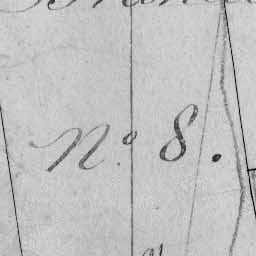 No. 8.